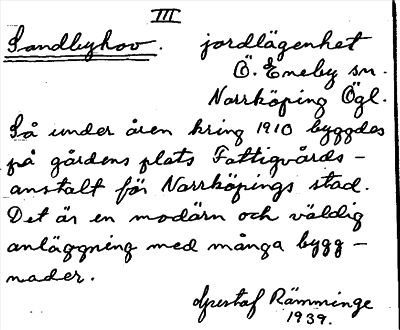 III
Sandbyhov. jordlägenhet
Ö. Eneby sn.
Norrköping Ögl.
Så under åren kring 1910 byggdes
på gårdens plats Fattigvårds-
anstalt för Norrköpings stad.
Det är en modärn och väldig
anläggning med många bygg-
nader.
Gustaf Rämminge
1939.